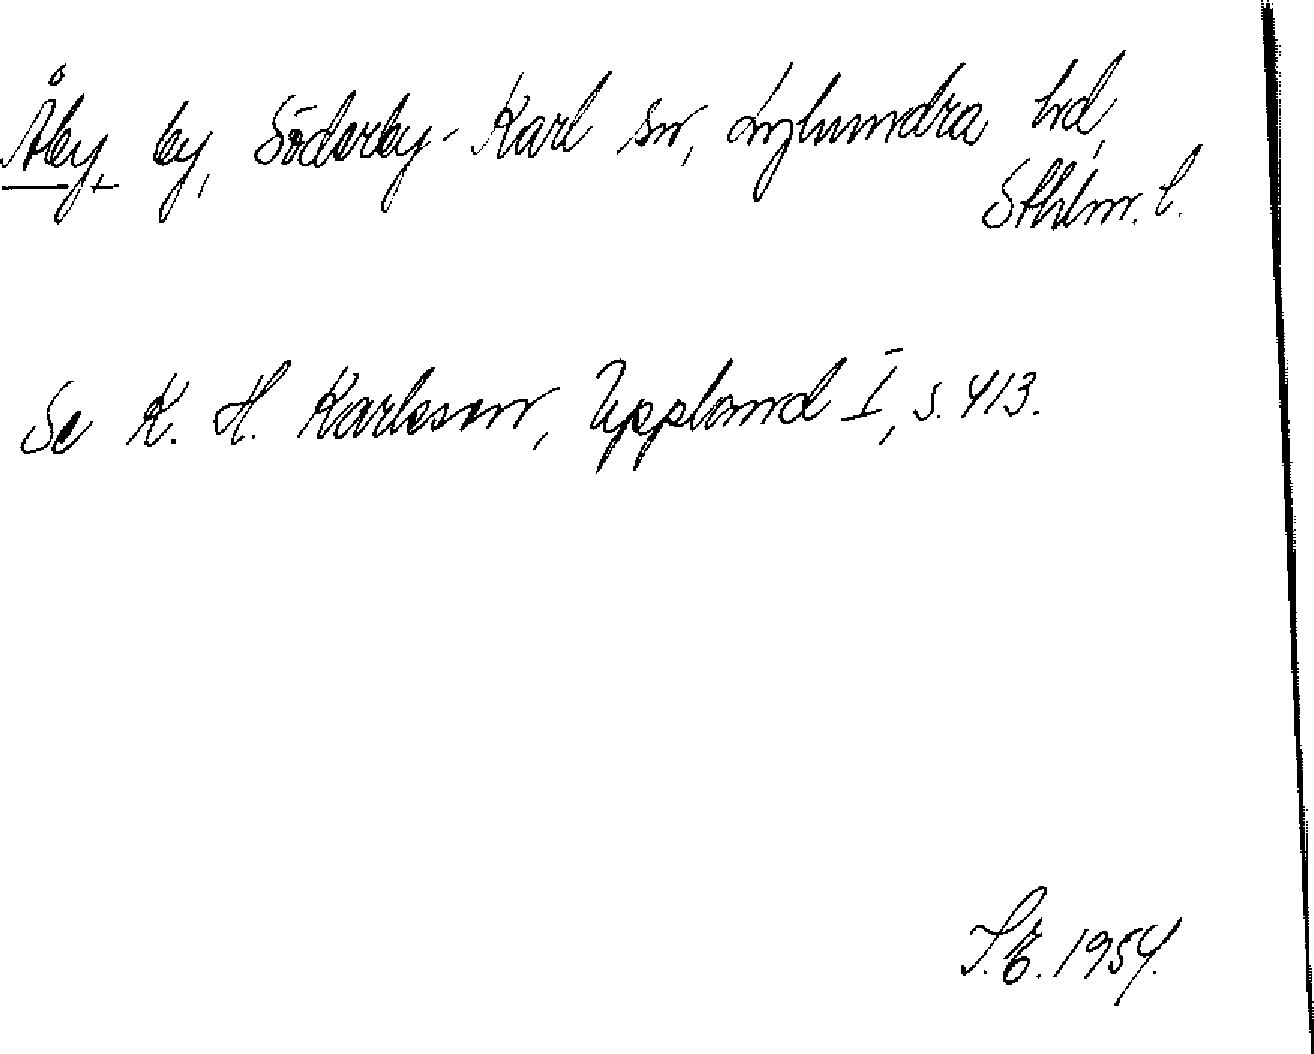 Åby, by, Söderby-Karl sn, Lyhundra hd,
Sthlm. l.
Se K. H. Karlsson, Uppland I, s. 413.
I.E. 1954.